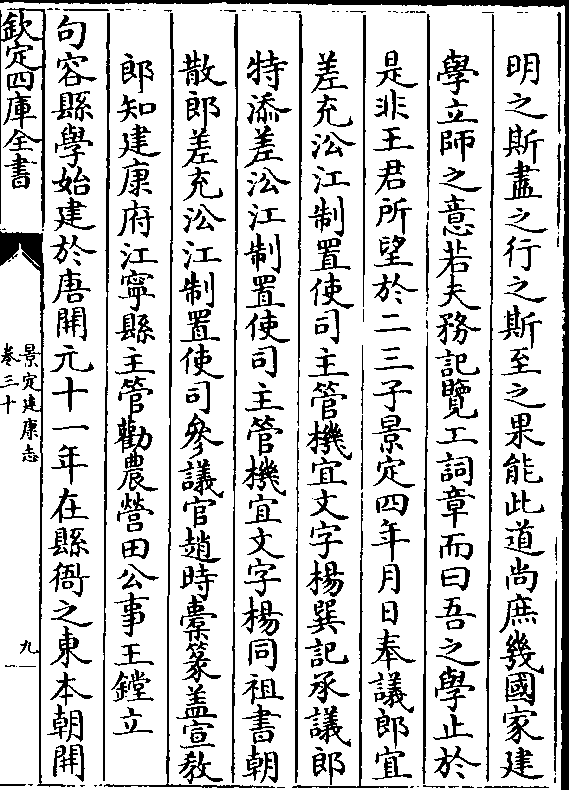 明之斯盡之行之斯至之果能此道尚庶幾國家建
學立師之意若夫務記覽工詞章而曰吾之學止於
是非王君所望於二三子景定四年月日奉議郎宜
差充㳂江制置使司主管機宜文字楊巽記承議郎
特添差㳂江制置使司主管機宜文字楊同祖書朝
散郎差充㳂江制置使司參議官趙時橐篆盖宣敎
郎知建康府江寧縣主管勸農營田公事王鏜立
句容縣學始建於唐開元十一年在縣衙之東本朝開
欽定四庫全書
景定建康志
卷三十
九